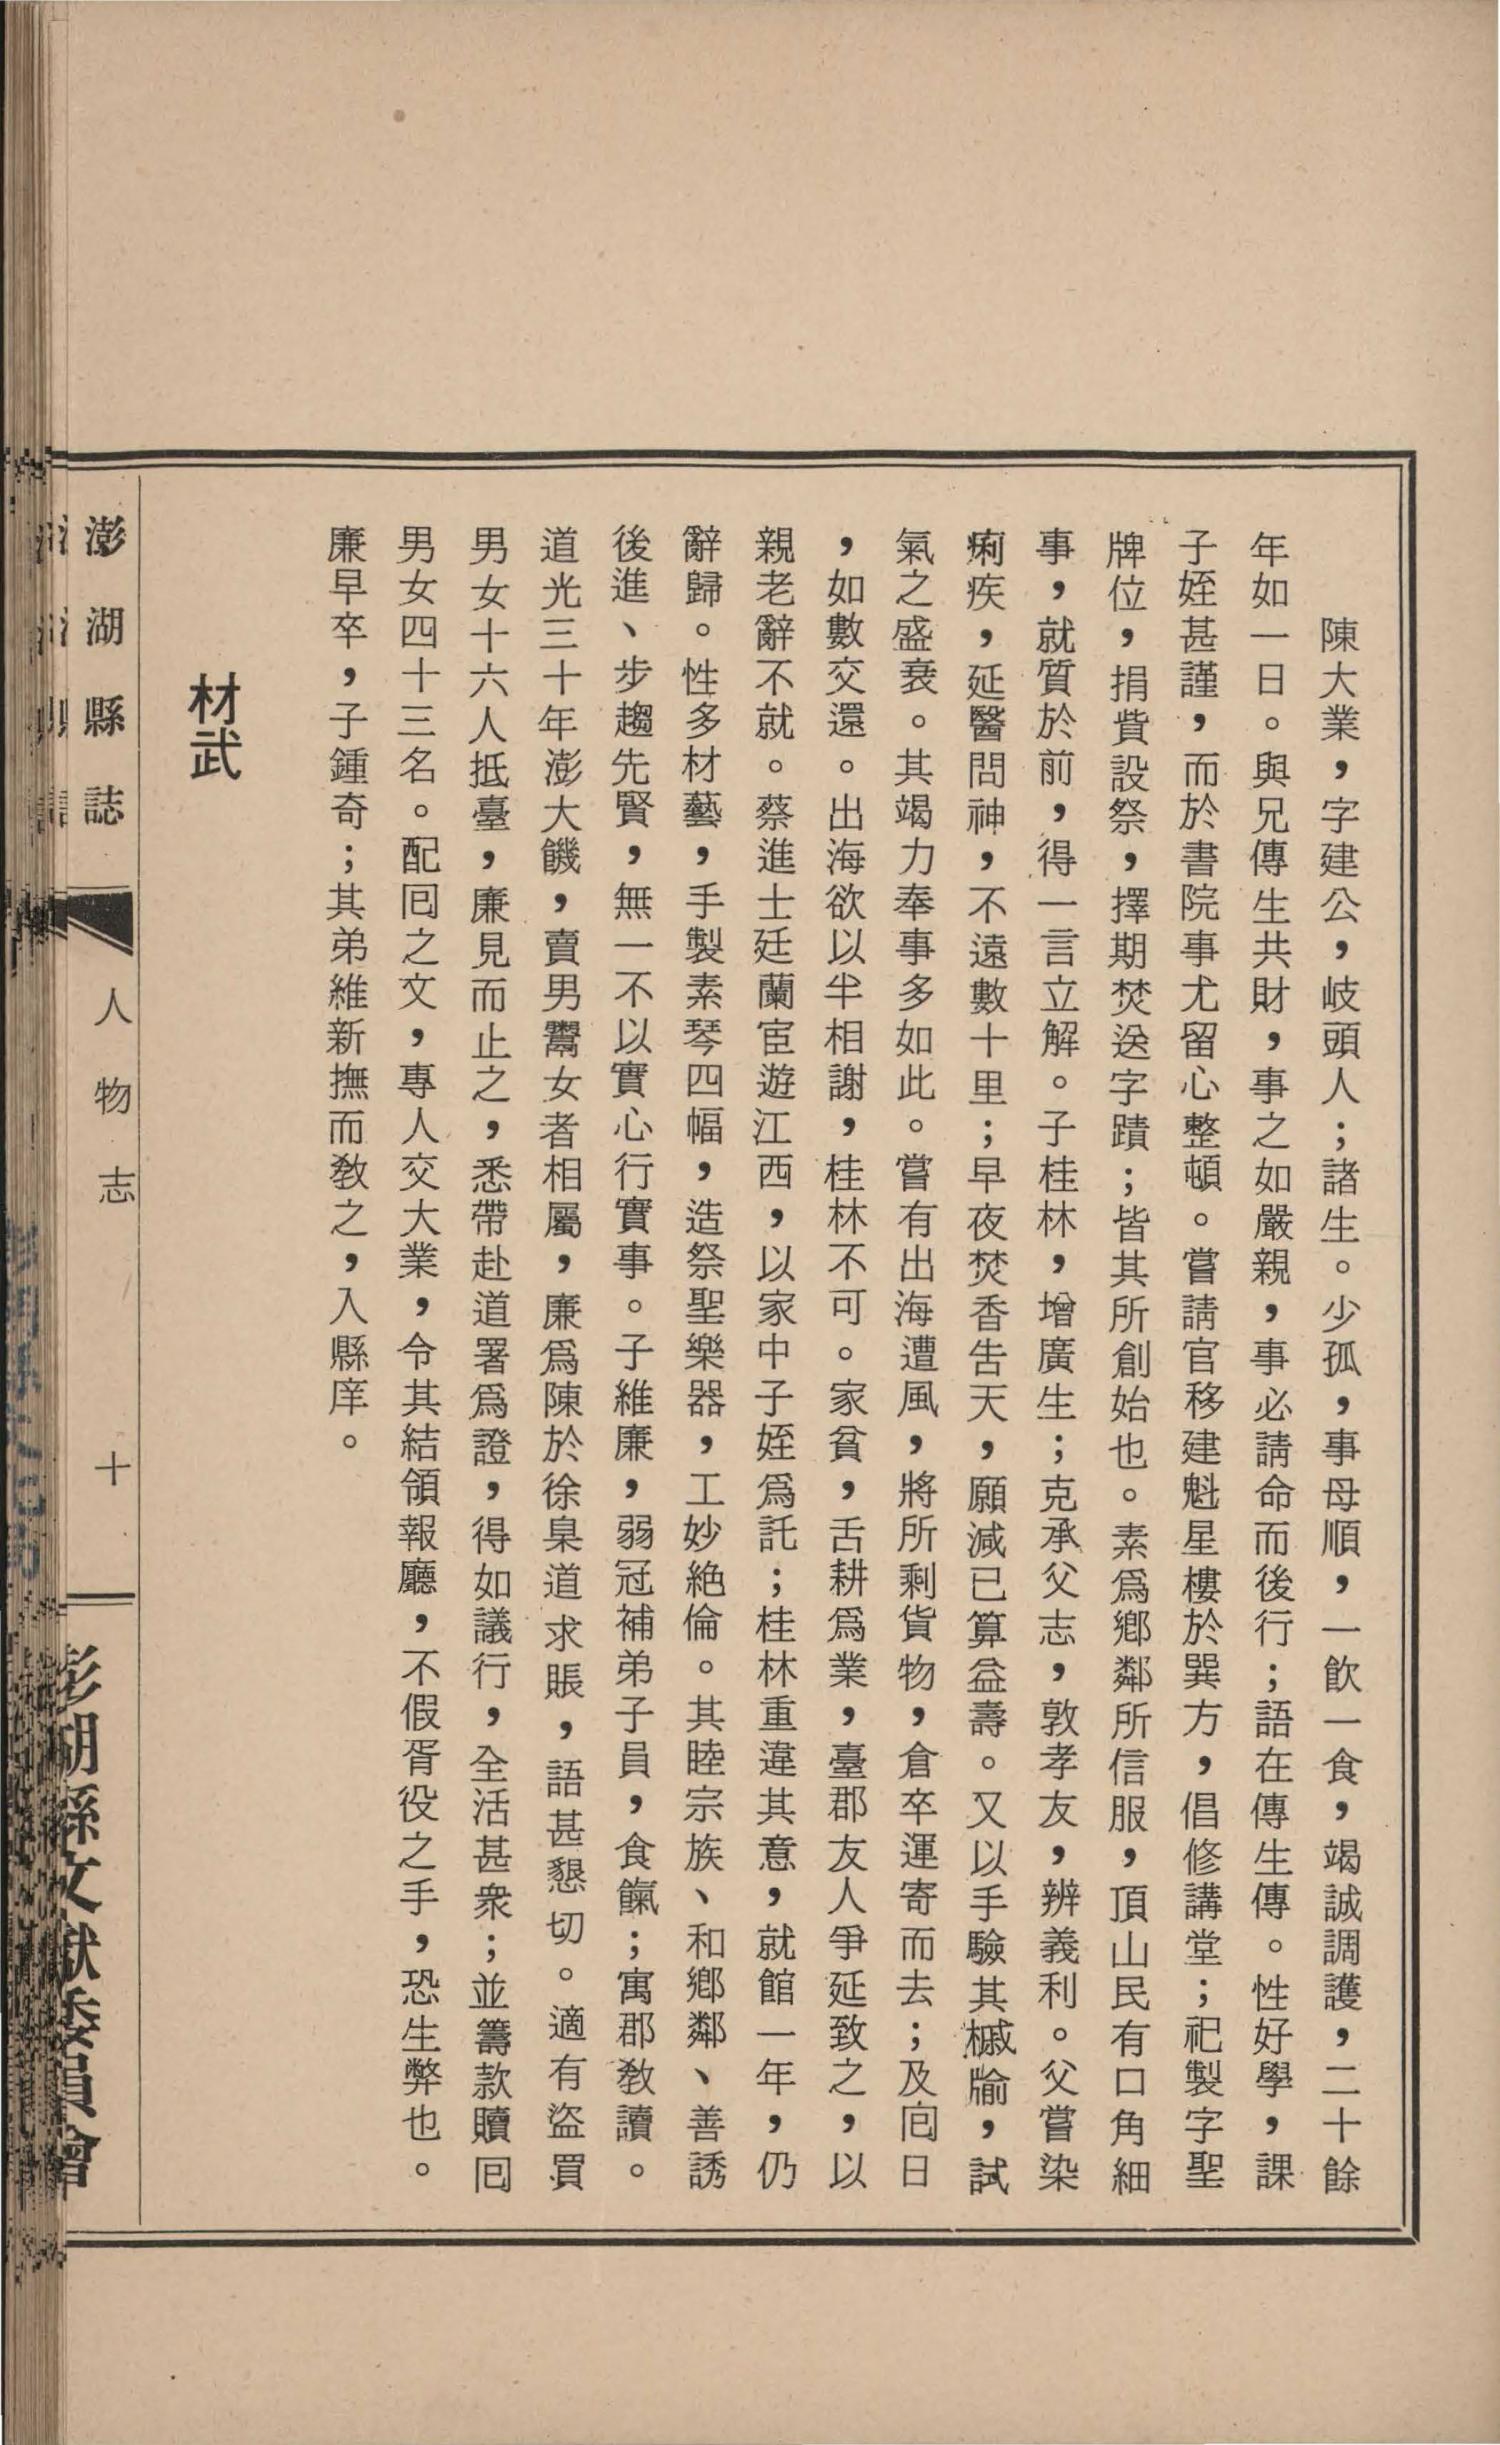 陳大業，字建公，岐頭人；諸生。少孤，事母順，一飲一食，竭誠調護，二十餘
年如一日。與兄傳生共財，事之如嚴親，事必請命而後行；語在傳生傳。性好學，課
子姪甚謹，而於書院事尤留心整頓。嘗請官移建魁星樓於巽方，倡修講堂；祀製字聖
牌位，捐費設祭，擇期焚送字蹟；皆其所創始也。素爲鄉鄰所信服，頂山民有口角細
事，就質於前，得一言立解。子桂林，增廣生；克承父志，敦孝友，辨義利。父嘗染
痢疾，延醫問神，不遠數十里；早夜焚香告天，願減已算益壽。又以手驗其槭牏，試
氣之盛衰。其竭力奉事多如此。嘗有出海遭風，將所剩貨物，倉卒運寄而去；及囘日
，如數交還。出海欲以半相謝，桂林不可。家貧，舌耕爲業，臺郡友人爭延致之，以
親老辭不就。蔡進士廷蘭宦遊江西，以家中子姪爲託；桂林重違其意，就館一年，仍
辭歸。性多材藝，手製素琴四幅，造祭聖樂器，工妙絶倫。其睦宗族、和鄉鄰、善誘
後進、步趨先賢，無一不以實心行實事。子維廉，弱冠補弟子員，食餼；寓郡敎讀。
道光三十年澎大饑，賣男鬻女者相屬，廉爲陳於徐臬道求賑，語甚懇切。適有盜買
男女十六人抵臺，廉見而止之，悉帶赴道署爲證，得如議行，全活甚衆；並籌款贖囘
男女四十三名。配囘之文，專人交大業，令其結領報廳，不假胥役之手，恐生弊也。
廉早卒，子鍾奇；其弟維新撫而敎之，入縣庠。
材武
澎湖縣誌
人物志
十
澎湖縣文獻委員會